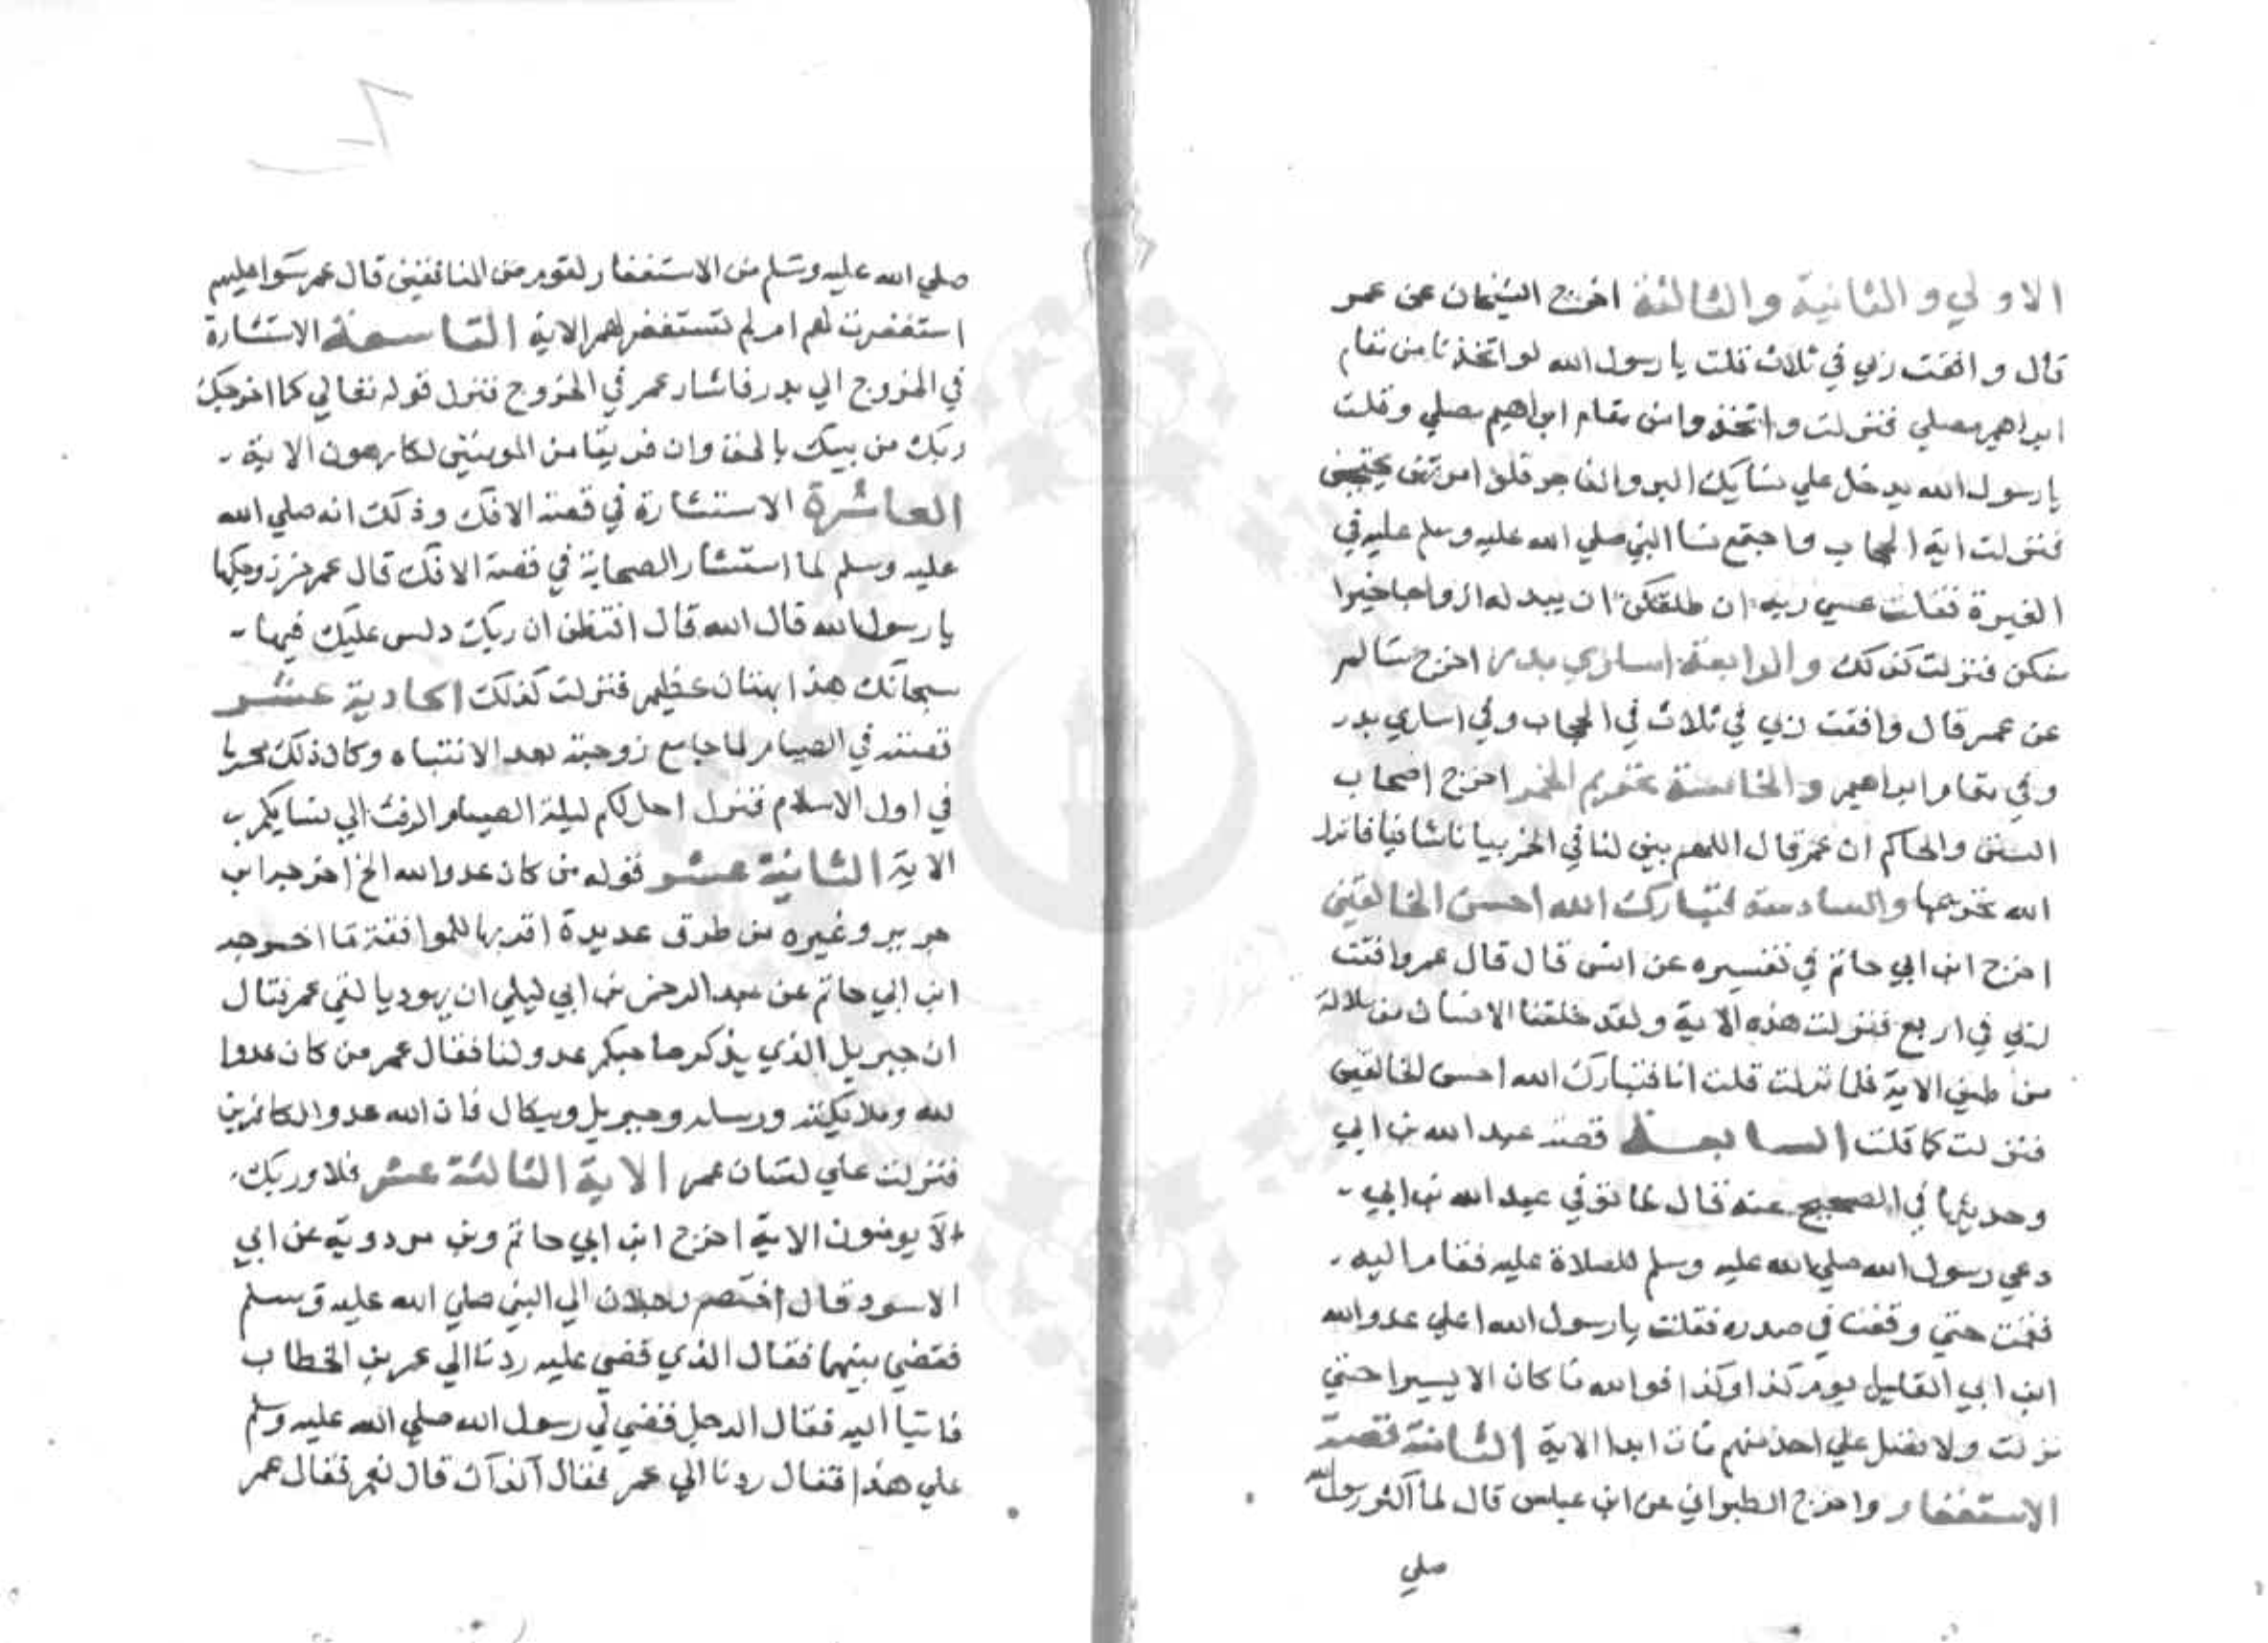 الاولي والثانية والثالثة اخرج الشيخان عن عمر
قال وافقت ربي في ثلاث قلت يا رسول الله لو اتخذنا من مقام
ابراهيم مصلي فنزلت واتخذوا من مقام ابراهيم مصلي وقلت
يا رسول الله يدخل علي نسايك البر والفاجر فلو امرتهن يحتجبن
فنزلت اية الحجاب واجتمع نسا النبي صلي الله عليه وسلم عليه في
الغيرة فقلت عسي ربه ان طلقكن ان يبدله ازواجا خيرا
منكن فنزلت كذلك والرابعة اساري بدر اخرج سالم
عن عمر قال وافقت ربي في ثلاث في الحجاب وفي اساري بدر
وفي مقام ابراهيم والخامسة تحريم الخمر اخرج اصحاب
السنن والحاكم ان عمر قال اللهم بين لنا في الخمر بيانا شافيا فانزل
الله تحريمها والسادسة فتبارك الله احسن الخالقين
اخرج ابن ابي حاتم في تفسيره عن انس قال قال عمر وافقت
لربي في اربع فنزلت هذه الاية ولقد خلقنا الانسان من سلالة
من طين الاية فلما نزلت قلت انا فتبارك الله احسن الخالقين
فنزلت كما قلت السابعة قصة عبد الله بن ابي
وحديثها في الصحيح عنه قال لما توفي عبد الله بن ابي
دعي رسول الله صلي الله عليه وسلم للصلاة عليه فقام اليه
فقمت حتي وقفت في صدره فقلت يا رسول الله اعلي عدو الله
ابن ابي القايل يوم كذا وكذا فوالله ما كان الا يسيرا حتي
نزلت ولا تصل علي احد منهم مات ابدا الاية الثامنة قصة
الاستغفار واخرج الطبراني عن ابن عباس قال لما اكثر رسول الله
صلي
صلي الله عليه وسلم من الاستغفار لقوم من المنافقين قال عمر سوا عليهم
استغفرت لهم ام لم تستغفر لهم الاية التاسعة الاستشارة
في الخروج الي بدر فاشار عمر في الخروج فنزل قوله تعالي كما اخرجك
ربك من بيتك بالحق وان فريقا من المومنين لكارهون الاية
العاشرة الاستشارة في قصة الافك وذلك انه صلي الله
عليه وسلم لما استشار الصحابة في قصة الافك قال عمر من زوجكها
يا رسول الله قال الله قال افتظن ان ربك دلس عليك فيها
سبحانك هذا بهتان عظيم فنزلت كذلك الحادية عشر
قصته في الصيام لما جامع زوجته بعد الانتباه وكان ذلك محرما
في اول الاسلام فنزل احل لكم ليلة الصيام الرفث الي نسايكم
الاية الثانية عشر قوله من كان عدوا لله الخ اخرجه ابن
جرير وغيره من طرق عديدة اقربها للموافقة ما اخرجه
ابن ابي حاتم عن عبد الرحمن بن ابي ليلي ان يهوديا لقي عمر فقال
ان جبريل الذي يذكر صاحبكم عدو لنا فقال عمر من كان عدوا
لله وملايكته ورسله وجبريل وميكال فان الله عدو الكافرين
فنزلت علي لسان عمر الاية الثالثة عشر فلا وربك
لا يومنون الاية اخرج ابن ابي حاتم وبن مردوية عن ابي
الاسود قال اختصم رجلان الي النبي صلي الله عليه وسلم
فقضي بينهما فقال الذي قضي عليه ردنا الي عمر بن الخطاب
فاتيا اليه فقال الرجل قضي لي رسول الله صلي الله عليه وسلم
علي هذا فقال ردنا الي عمر فقال اكذاك قال نعم فقال عمر